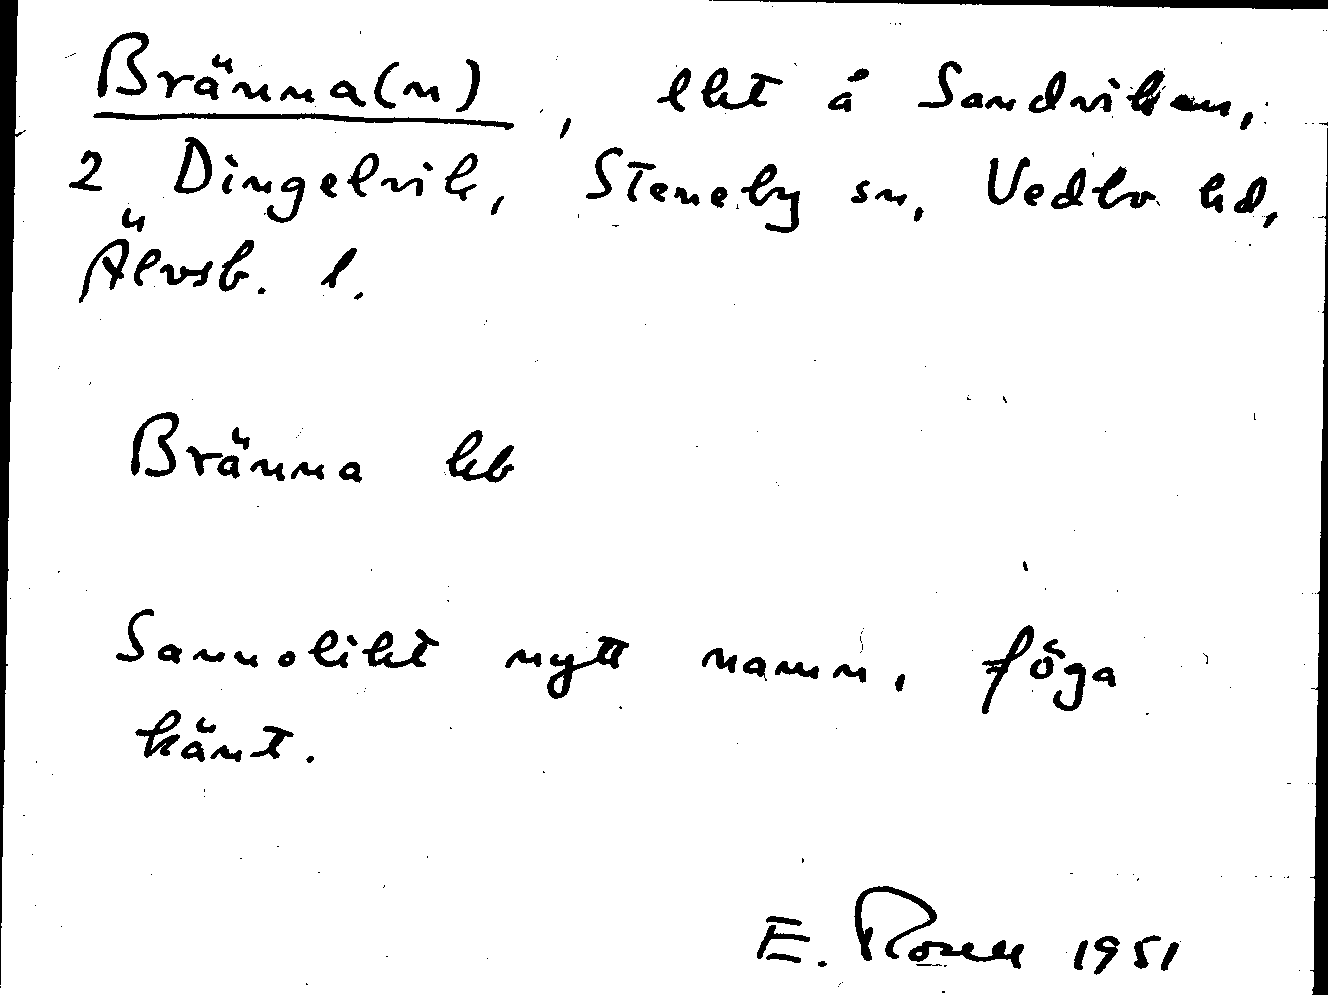 Bränna(n), lht å Sandviken,
2 Dingelvik, Steneby sn, Vedbo hd,
Älvsb. l.
Bränna kb
Sannolikt nytt namn, föga
känt.
E. Rosell 1951